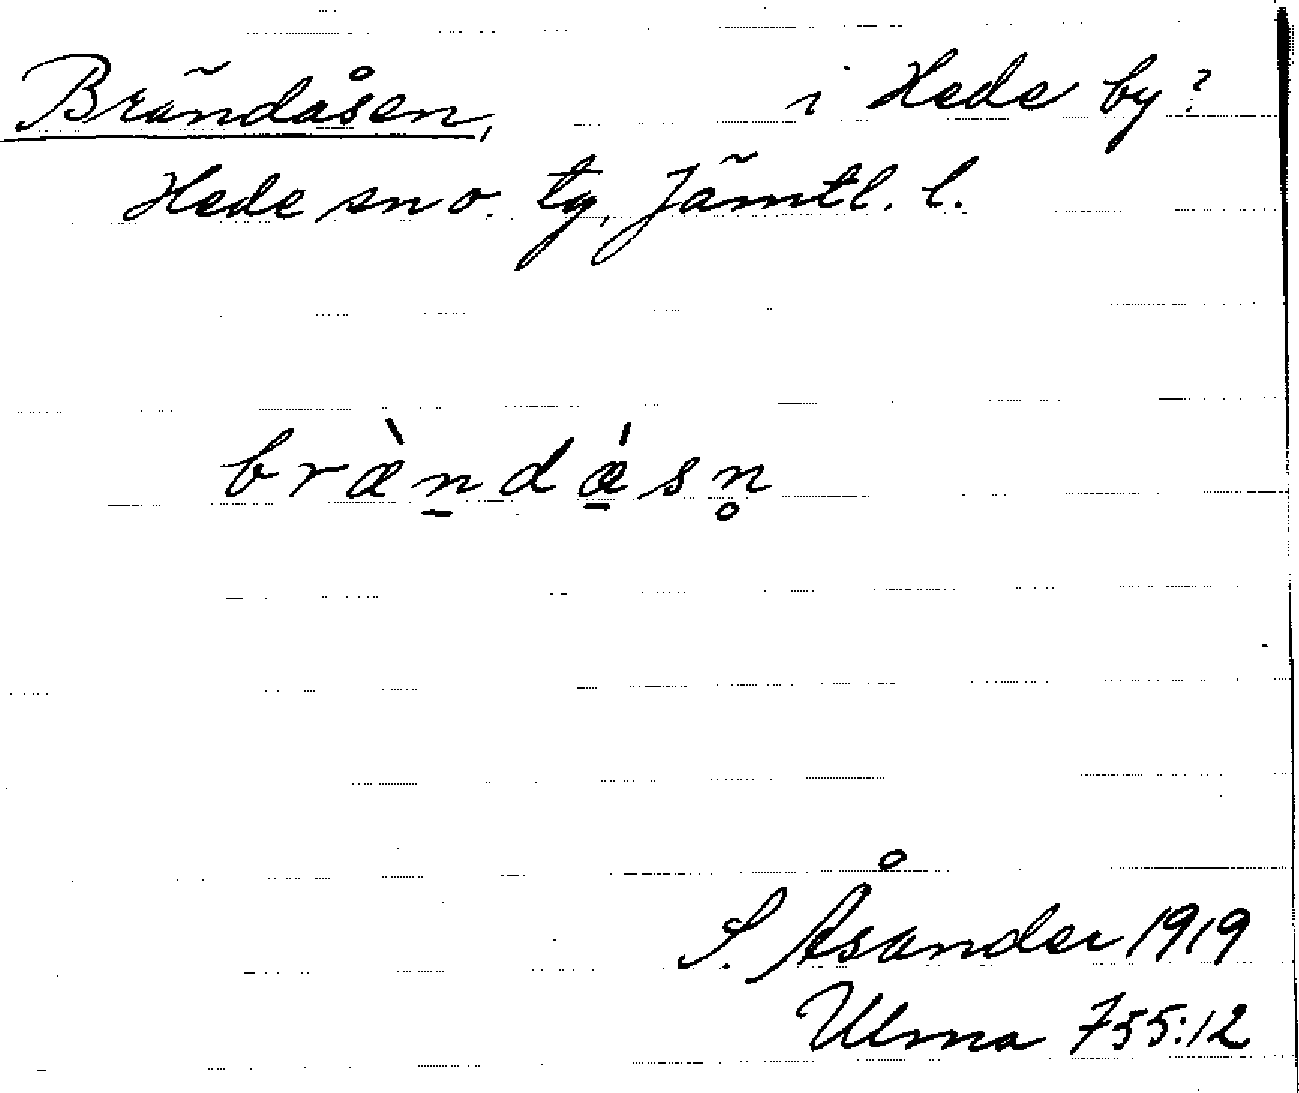 Brändåsen, i Hede by?
Hede sn o. tg, Jämtl. l.
bræ̀n̠dǽ̠sn̥
S. Åsander 1919
Ulma 755:12